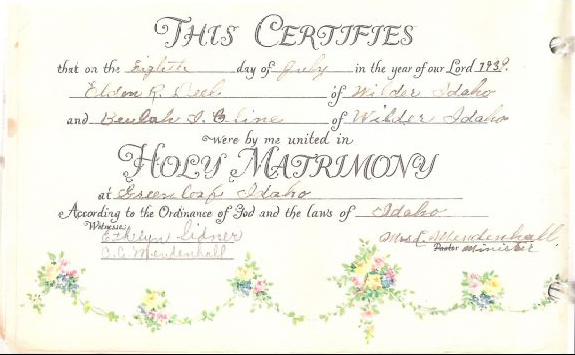 THIS CERTIFIES
that on the Eighth day of July in the year of our Lord 1939.
Eldon R. of Wilder Idaho
and Beulah I. Cline of Wilder Idaho
were by me united in
HOLY MATRIMONY
at Greenleaf Idaho
According to the Ordinance of God and the laws of Idaho
Witnesses
Ethelyn Lidner
C. C. Mendenhall
Mrs C Mendenhall,
Pastor Minister